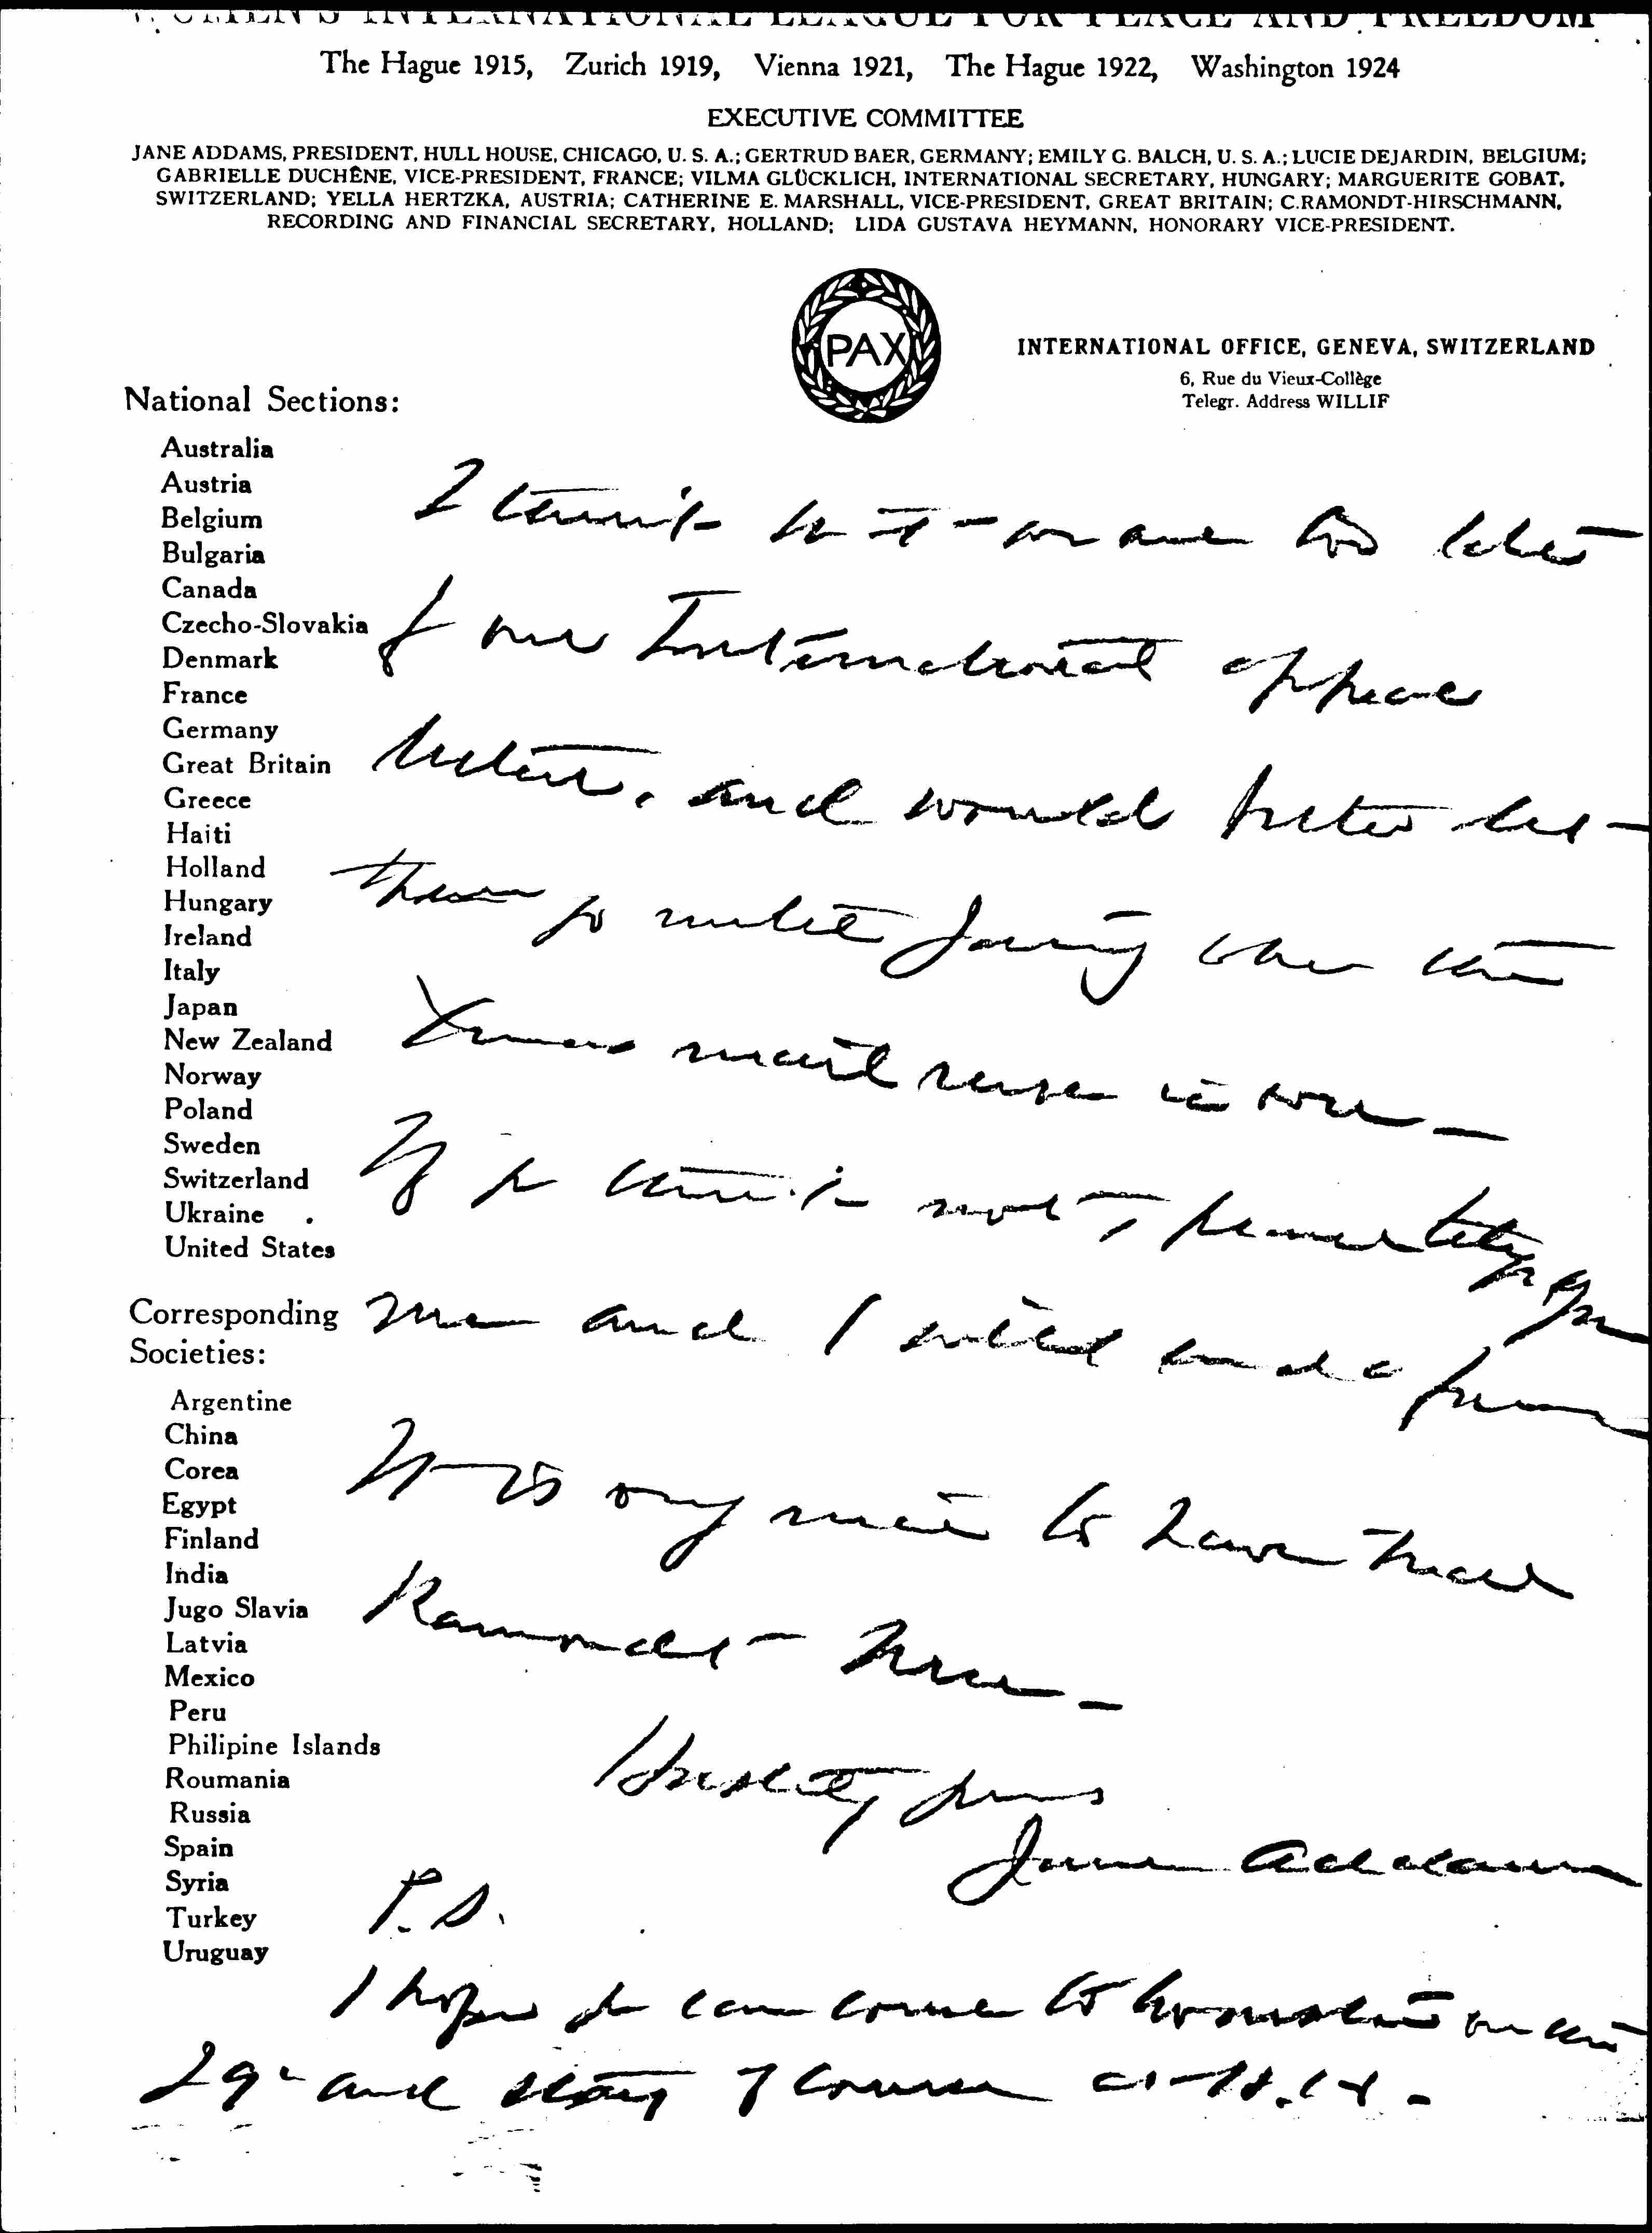 WOMEN'S INTERNATIONAL LEAGUE FOR PEACE AND FREEDOM
The Hague 1915, Zurich 1919, Vienna 1921, The Hague 1922, Washington 1924
EXECUTIVE COMMITTEE
JANE ADDAMS, PRESIDENT, HULL HOUSE, CHICAGO, U. S. A.; GERTRUD BAER, GERMANY; EMILY G. BALCH, U. S. A.; LUCIE DEJARDIN, BELGIUM;
GABRIELLE DUCHÊNE, VICE-PRESIDENT, FRANCE; VILMA GLÜCKLICH, INTERNATIONAL SECRETARY, HUNGARY; MARGUERITE GOBAT,
SWITZERLAND; YELLA HERTZKA, AUSTRIA; CATHERINE E. MARSHALL, VICE-PRESIDENT, GREAT BRITAIN; C.RAMONDT-HIRSCHMANN,
RECORDING AND FINANCIAL SECRETARY, HOLLAND; LIDA GUSTAVA HEYMANN, HONORARY VICE-PRESIDENT.
PAX
INTERNATIONAL OFFICE, GENEVA, SWITZERLAND
6, Rue du Vieux-Collège
Telegr. Address WILLIF
National Sections:
Australia
Austria
Belgium
Bulgaria
Canada
Czecho-Slovakia
Denmark
France
Germany
Great Britain
Greece
Haiti
Holland
Hungary
Ireland
Italy
Japan
New Zealand
Norway
Poland
Sweden
Switzerland
Ukraine
United States
Corresponding
Societies:
Argentine
China
Corea
Egypt
Finland
India
Jugo Slavia
Latvia
Mexico
Peru
Philipine Islands
Roumania
Russia
Spain
Syria
Turkey
Uruguay
I think that we are too late
for our International appeal
letters, and would better let
them go until Jan'y when the
Xmas mail rush is over —
If you think not, please telephone
me and I will send a
It is very nice to have had
Ramondt here —
Hastily yours
Jane Addams
P.S.
I hope you can come to on the
29" and stay of course at H.H. -